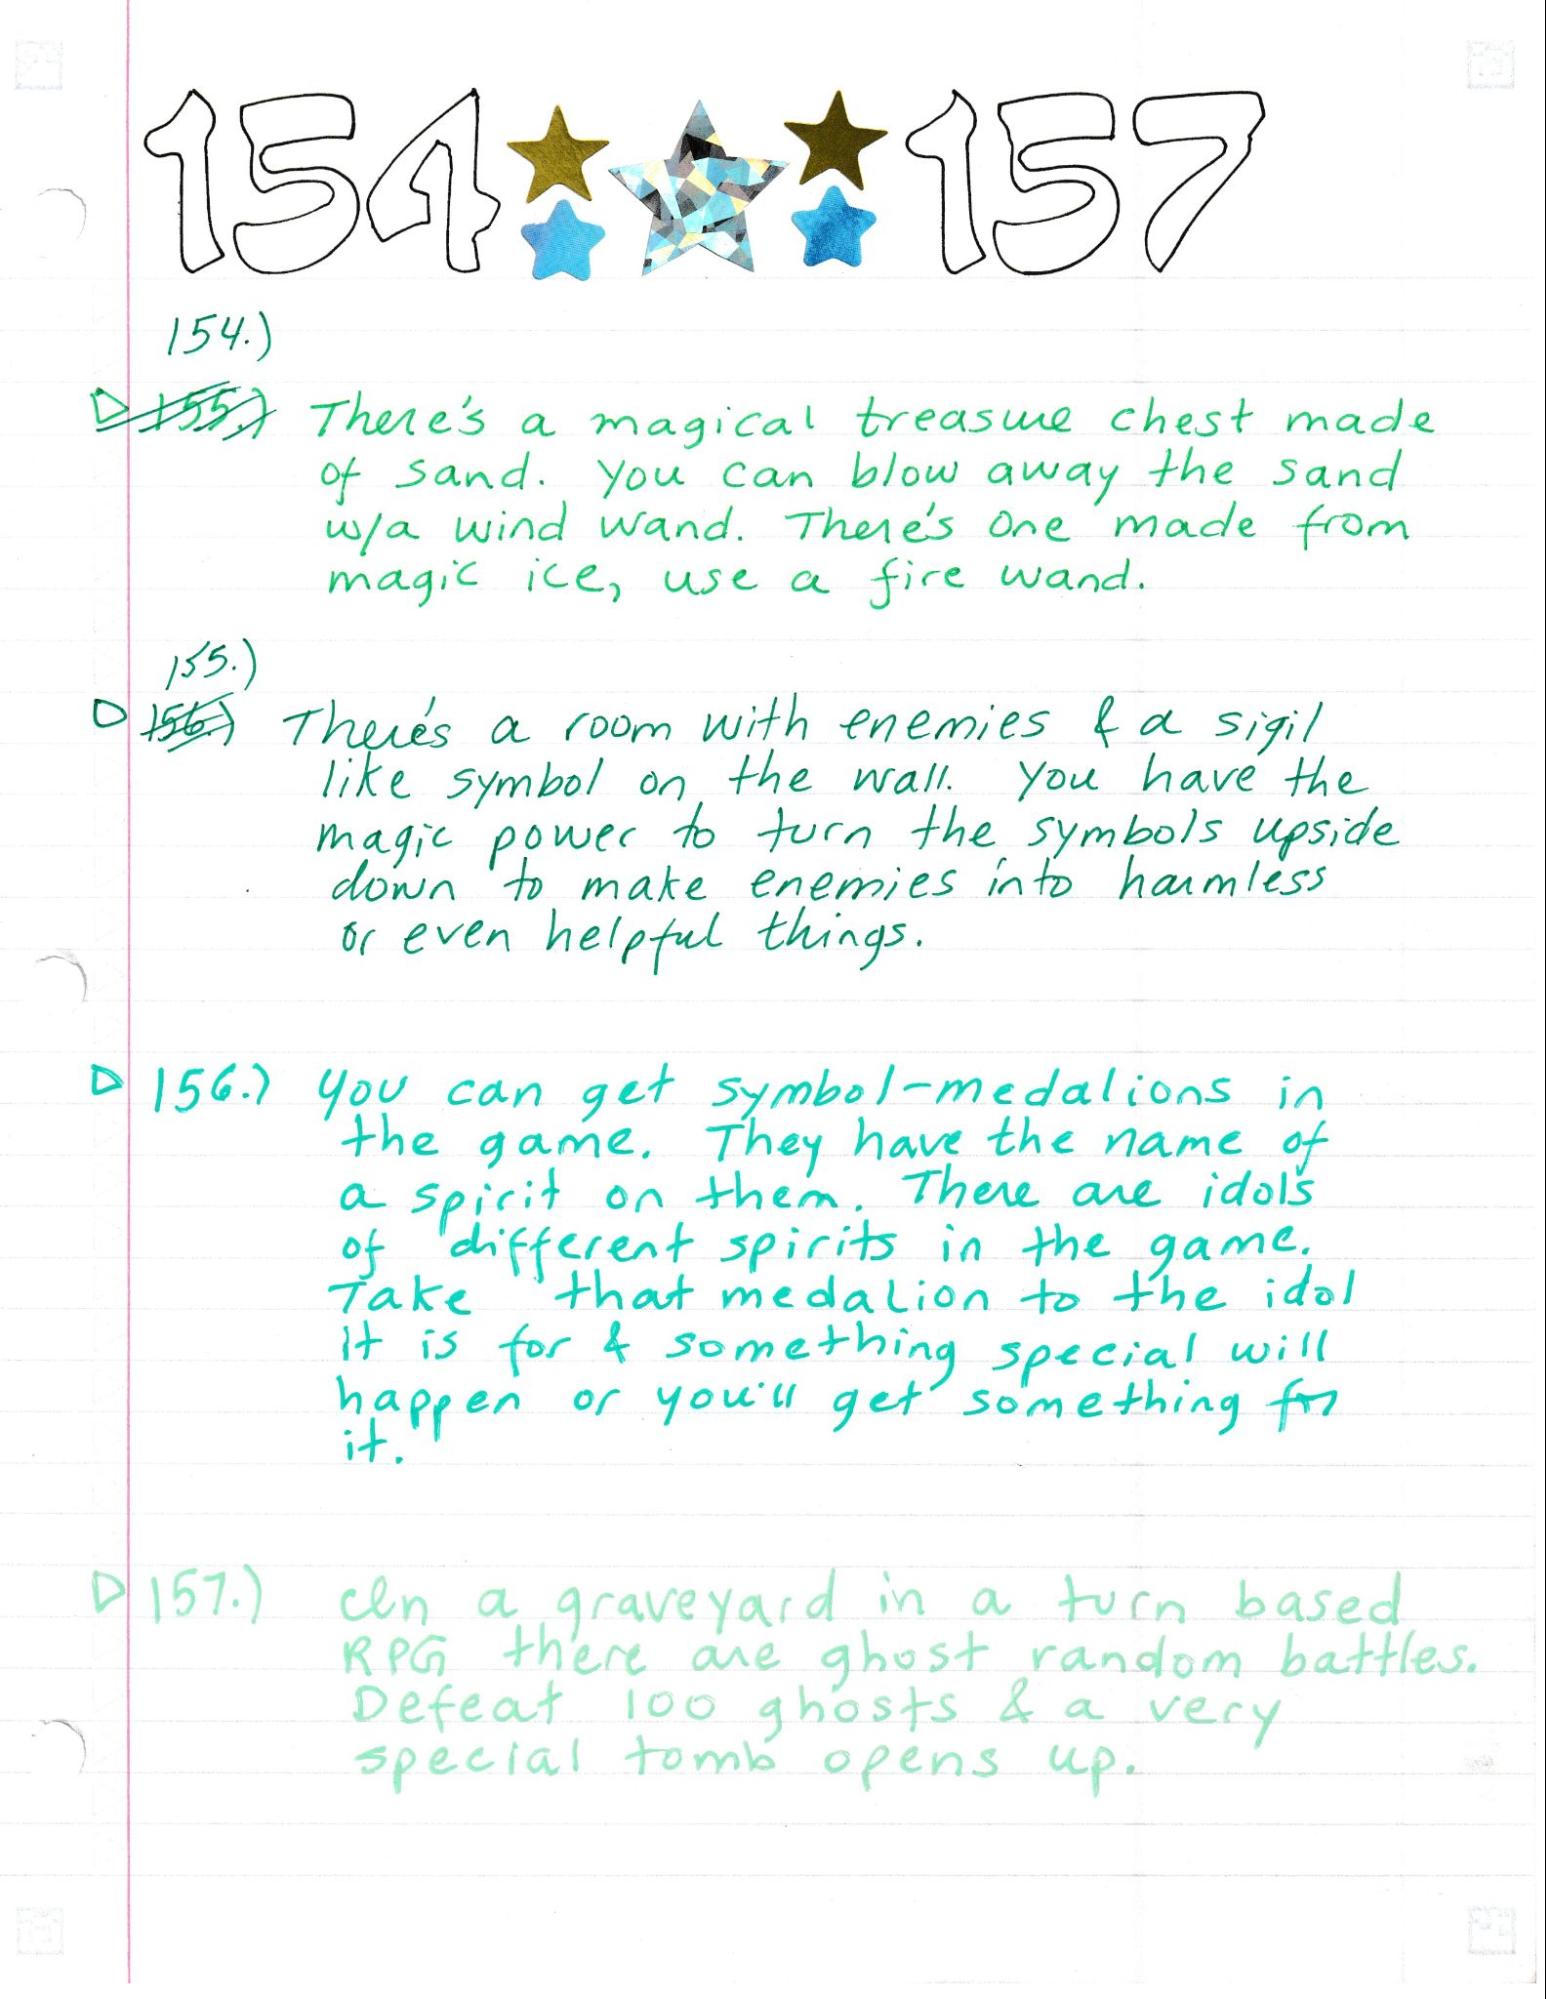 154 157
154.)
155.) There's a magical treasure chest made
of sand. You can blow away the sand
w/a wind wand. There's one made from
magic ice, use a fire wand.
155.)
156.) There's a room with enemies & a sigil
like symbol on the wall. You have the
magic power to turn the symbols upside
down to make enemies into harmless
or even helpful things.
156.) You can get symbol-medalions in
the game. They have the name of
a spirit on them. There are idols
of different spirits in the game.
Take that medalion to the idol
it is for & something special will
happen or you'll get something for
it.
157.) In a graveyard in a turn based
RPG there are ghost random battles.
Defeat 100 ghosts & a very
special tomb opens up.